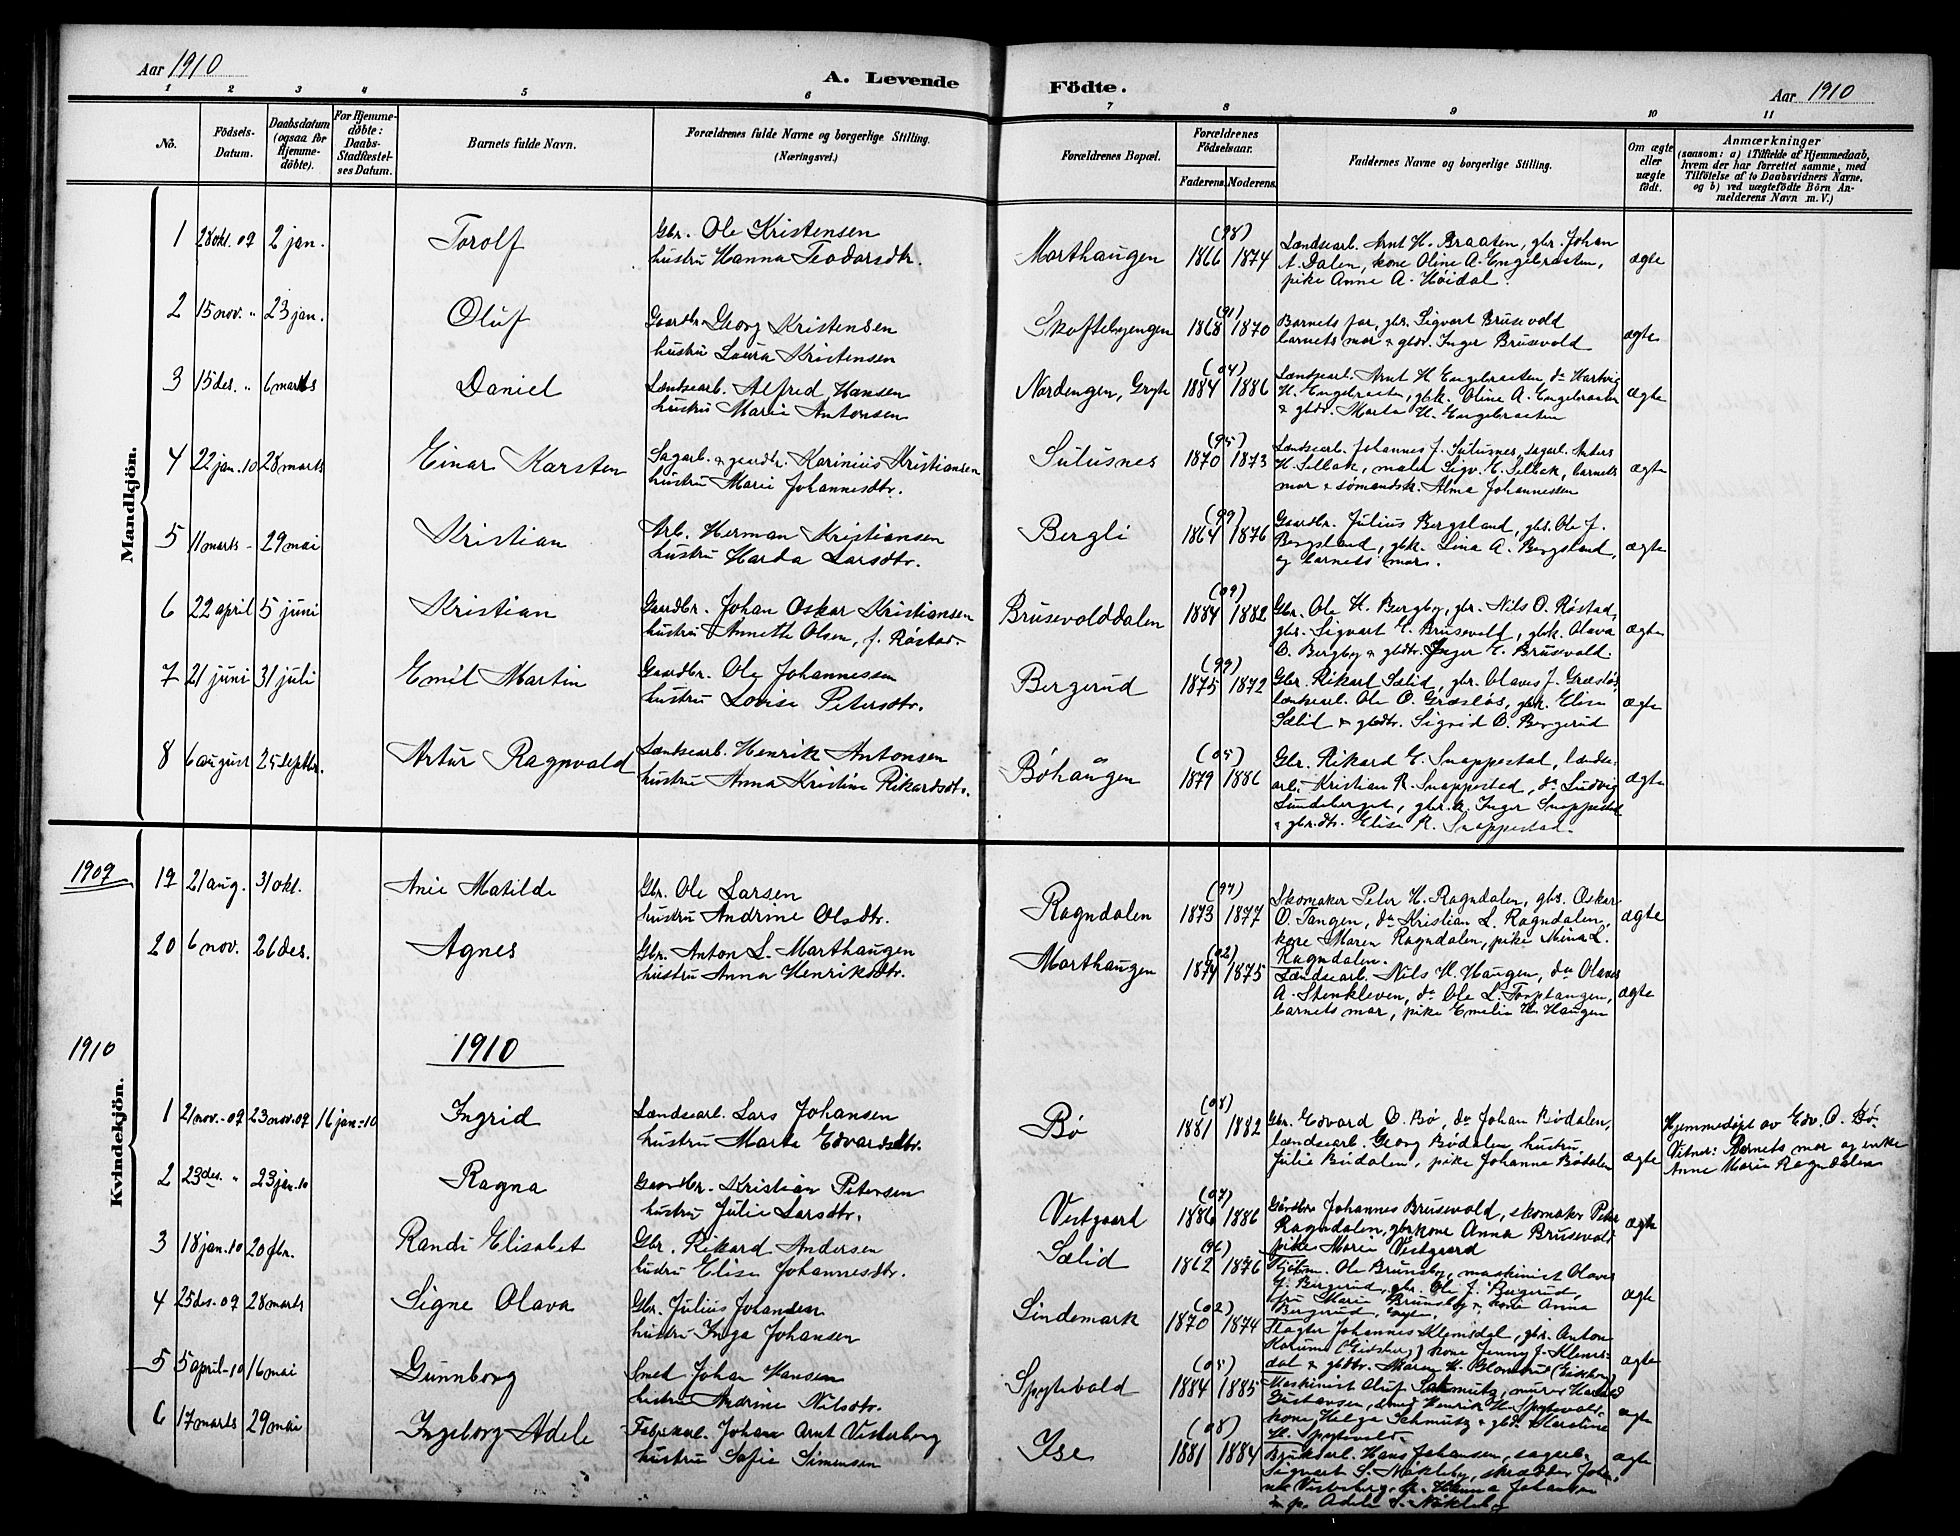 Aar 1910
A. Levende Födte.
Aar 1910
1 2 3 4 5 6 7 8 9 10 11
No.
Födsels-Datum.
Daabsdatum (ogsaa for Hjemme-döbte).
For Hjemme-döbte: Daabs-Stadfæstel-ses Datum.
Barnets fulde Navn.
Forældrenes fulde Navne og borgerlige Stilling. (Næringsvei.)
Forældrenes Bopæl.
Forældrenes Födselsaar.
Faderens. Moderens.
Faddernes Navne og borgerlige Stilling.
Om ægte eller uægte födt.
Anmærkninger
(saasom: a) i Tilfælde af Hjemmedaab,
hvem der har forrettet samme, med
Tilföielse af to Daabsvidners Navne,
og b) ved uægtefödte Börn An-
melderens Navn m.V.)
Mandkjön.
1 28 okt. 09 2 jan. Torolf
Gbr. Ole Kristensen
hustru Hanna Teodorsdtr.
Marthaugen (98) 1866 1874
Lændsearb. Arnt H. Braaten, gbr. Johan
A. Dalen, kone Oline A. Engebraaten,
pike Anne A. Høidal.
ægte
2 15 nov. " 23 jan. Oluf
Gaardbr. Georg Kristensen
hustru Laura Kristensen
Skoftebyengen (91) 1868 1870
Barnets far, gbr. Sigvart Brusevold
barnets mor & gbdr. Inger Brusevold
ægte
3 15 des. " 6 marts Daniel
Lændsearb. Alfred Hansen
hustru Marie Antonsen
Nordengen, Gryte (04) 1884 1886
Lændsearb. Arnt H. Engebraaten, do Hartvig
H. Engebraaten, gbk. Oline A. Engebraaten
& gbdr. Marta H. Engebraaten
ægte
4 22 jan. 10 28 marts Einar Karsten
Sagarb. & gaardbr. Karinius Kristiansen
hustru Marie Johannesdtr.
Sulusnes (95) 1870 1873
Lændsearb. Johannes J. Sulusnes, sagarb. Anders
H. Sellæk, maler Sigv. E. Sellæk, barnets
mor & sømandsk. Alma Johannessen
ægte
5 11 marts - 29 mai Kristian
Arb. Herman Kristiansen
hustru Harda Larsdtr.
Bergli (99) 1864 1876
Gaardbr. Julius Bergsland, gbs. Ole J.
Bergsland, gbk. Lina A. Bergsland,
og barnets mor.
ægte
6 22 april 5 juni Kristian
Gaardbr. Johan Oskar Kristiansen
hustru Annette Olsen, f. Røstad.
Brusevolddalen (09) 1884 1882
Gbr. Ole H. Bergby, gbr. Nils O. Røstad,
gbs. Sigvart E. Brusevold, gbk. Olava
O. Bergby & gbdtr. Inger E. Brusvold.
ægte
7 21 juni 31 juli Emil Martin
Gaardbr. Ole Johannessen
hustru Lovise Petersdtr.
Bergerud (99) 1875 1872
Gbr. Rikart Sælid, gbr. Olaves J. Græsløs,
lændsearb. Ole O. Græsløs, gbk. Elise
Sælid & gbdtr. Sigrid O. Bergerud
ægte
8 6 august 25 septbr. Artur Ragnvald
Lændsearb. Henrik Antonsen
hustru Anna Kristine Rikardsdtr.
Bøhaugen (05) 1879 1886
Gbr. Rikard E. Snappestad, lændse-
arb. Kristian R. Snappestad, do Ludvig
Lundeberget, gbr.k. Inger Snappestad
& gbr.dtr. Elise R. Snappestad.
ægte
Kvindekjön.
1909
19 21 aug. 31 okt. Anie Matilde
Gbr. Ole Larsen
hustru Andrine Olsdtr.
Ragndalen (97) 1873 1877
Skomaker Peter H. Ragndalen, gbs. Oskar
O. Tangen, do Kristian L. Ragndalen,
kone Maren Ragndalen, pike Mina L.
Ragndalen.
ægte
20 6 nov. 26 des. Agnes
Gbr. Anton L. Marthaugen
hustru Anna Henriksdtr.
Marthaugen (02) 1874 1875
Lændsearb. Nils H. Haugen, do Olaves
A. Stenkleven, do Ole L. Torptangen,
barnets mor, pike Emelie H. Haugen
ægte
1910
1910
1 21 nov.-09 23 nov.09 16 jan.-10 Ingrid
Lændsearb. Lars Johansen
hustru Marte Edvardsdtr.
Bø (08) 1881 1882
Gbr. Edvard O. Bø, do Johan Bødalen,
lændsearb. Georg Bødalen, hustru
Julie Bødalen, pike Johanne Bødalen
ægte
Hjemmedøpt av Edv. O. Bø.
Vitner: Barnets mor og enke
Anne Marie Ragndalen
2 23 des. " 23 jan. 10 Ragna
Gaardbr. Kristian Petersen
hustru Julie Larsdtr.
Vestgaard (07) 1886 1886
Gårdbr. Johannes Brusevold, skomaker Peter
Ragndalen, gbr.kone Anna Brusevold
pike Marie Vestgaard
ægte
3 18 jan. 10 20 fbr. Randi Elisabet
Gbr. Rikard Andersen
hustru Elise Johannesdtr.
Sælid (96) 1862 1876
Ole Brunsby, maskinist Olaves
J. Bergerud, gbr. Ole J. Bergerud,
fru Marie Brunsby & kone Anna
Bergerud,
ægte
4 25 des. 09 28 marts Signe Olava
Gbr. Julius Johansen
hustru Inga Johansen
Lindemark (02) 1870 1874
Slagter Johannes Klemsdal, gbr. Anton
Korum (Eidsberg) kone Jenny J. Klems-
dal & gbdtr. Maren H.
ægte
5 5 april-10 16 mai Gunnborg
Smed Johan Hansen
hustru Andrine Nilsdtr.
Spytevold (05) 1884 1885
Maskinist Oluf Schmutz, murer Harald
Gustavsen, smed Henrik H. Spytevold,
kone Helga Schmutz & gbd. Karoline
H. Spytevold.
ægte
6 17 marts 29 mai Ingeborg Adele
Fabrikarb. Johan Arnt Vesterborg
hustru Sofie Simensen
Ise (08) 1881 1884
Brukarb. Hans Johansen, sagarb.
Sigvart S. Nikleby, skrædder Johan
Hanna Johansen
& p. Adele S. Nikleby
ægte